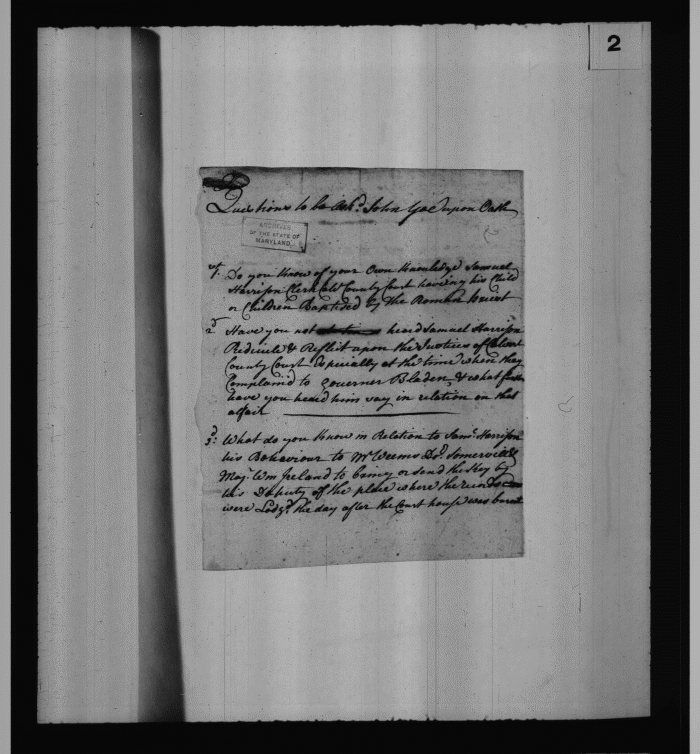 2
Questions to be Ask.d John Gae upon Oath
ARCHIVES
OF THE STATE OF
MARYLAND
1st. Do you Know of your Own Knowledge Samuel
Harrison Clerk County Court haveing his Child
or Children Baptised by the Roman Priest
2d Have you not heard Samuel Harrison
Redicule & Reflect upon the Justices of Calvert
County Court Especially at the time when they
Complaind to Governer Bladen & what
have you heard him say in relation on that
afair
3d: What do you Know in Relation to Saml. Harrison
his Behaviour to Mr Weems Dor. Somervell &
Majr. Wm Ireland to bring or send the Key by
his Deputy of the place where the records
were Lodg.d the day after the Court house was burnt